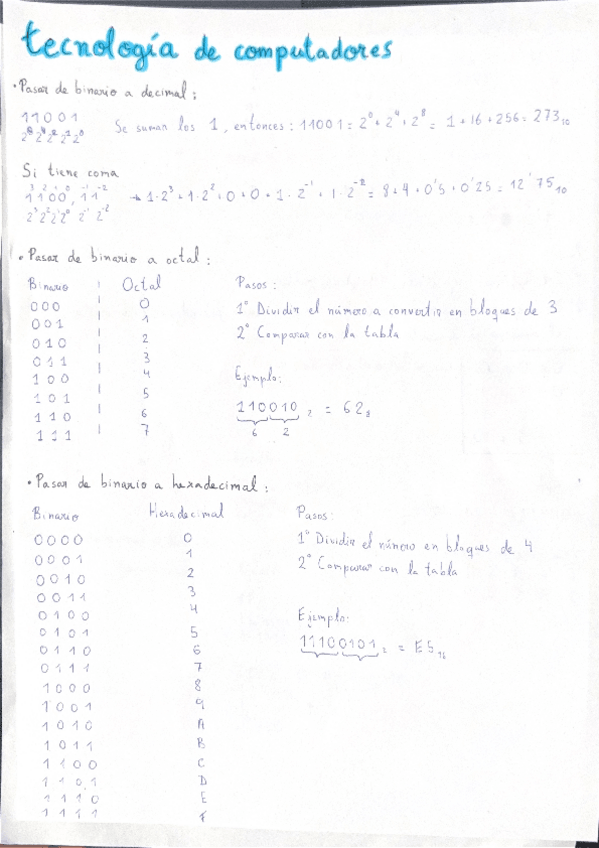 tecnología de computadores
• Pasar de binario a decimal:
11001
2⁸ 2⁴ 2² 2¹ 2⁰
Se suman los 1, entonces: 11001 = 2⁰ + 2⁴ + 2⁸ = 1 + 16 + 256 = 273₁₀
Si tiene coma
3 2 1 0 -1 -2
1100,11 → 1·2³ + 1·2² + 0 + 0 + 1·2⁻¹ + 1·2⁻² = 8 + 4 + 0'5 + 0'25 = 12'75₁₀
2³ 2² 2¹ 2⁰ 2⁻¹ 2⁻²
• Pasar de binario a octal:
Binario | Octal
000 | 0
001 | 1
010 | 2
011 | 3
100 | 4
101 | 5
110 | 6
111 | 7
Pasos:
1º Dividir el número a convertir en bloques de 3
2º Comparar con la tabla
Ejemplo:
110010₂ = 62₈
6 2
• Pasar de binario a hexadecimal:
Binario Hexadecimal
0000 0
0001 1
0010 2
0011 3
0100 4
0101 5
0110 6
0111 7
1000 8
1001 9
1010 A
1011 B
1100 C
1101 D
1110 E
1111 F
Pasos:
1º Dividir el número en bloques de 4
2º Comparar con la tabla
Ejemplo:
11100101₂ = E5₁₆